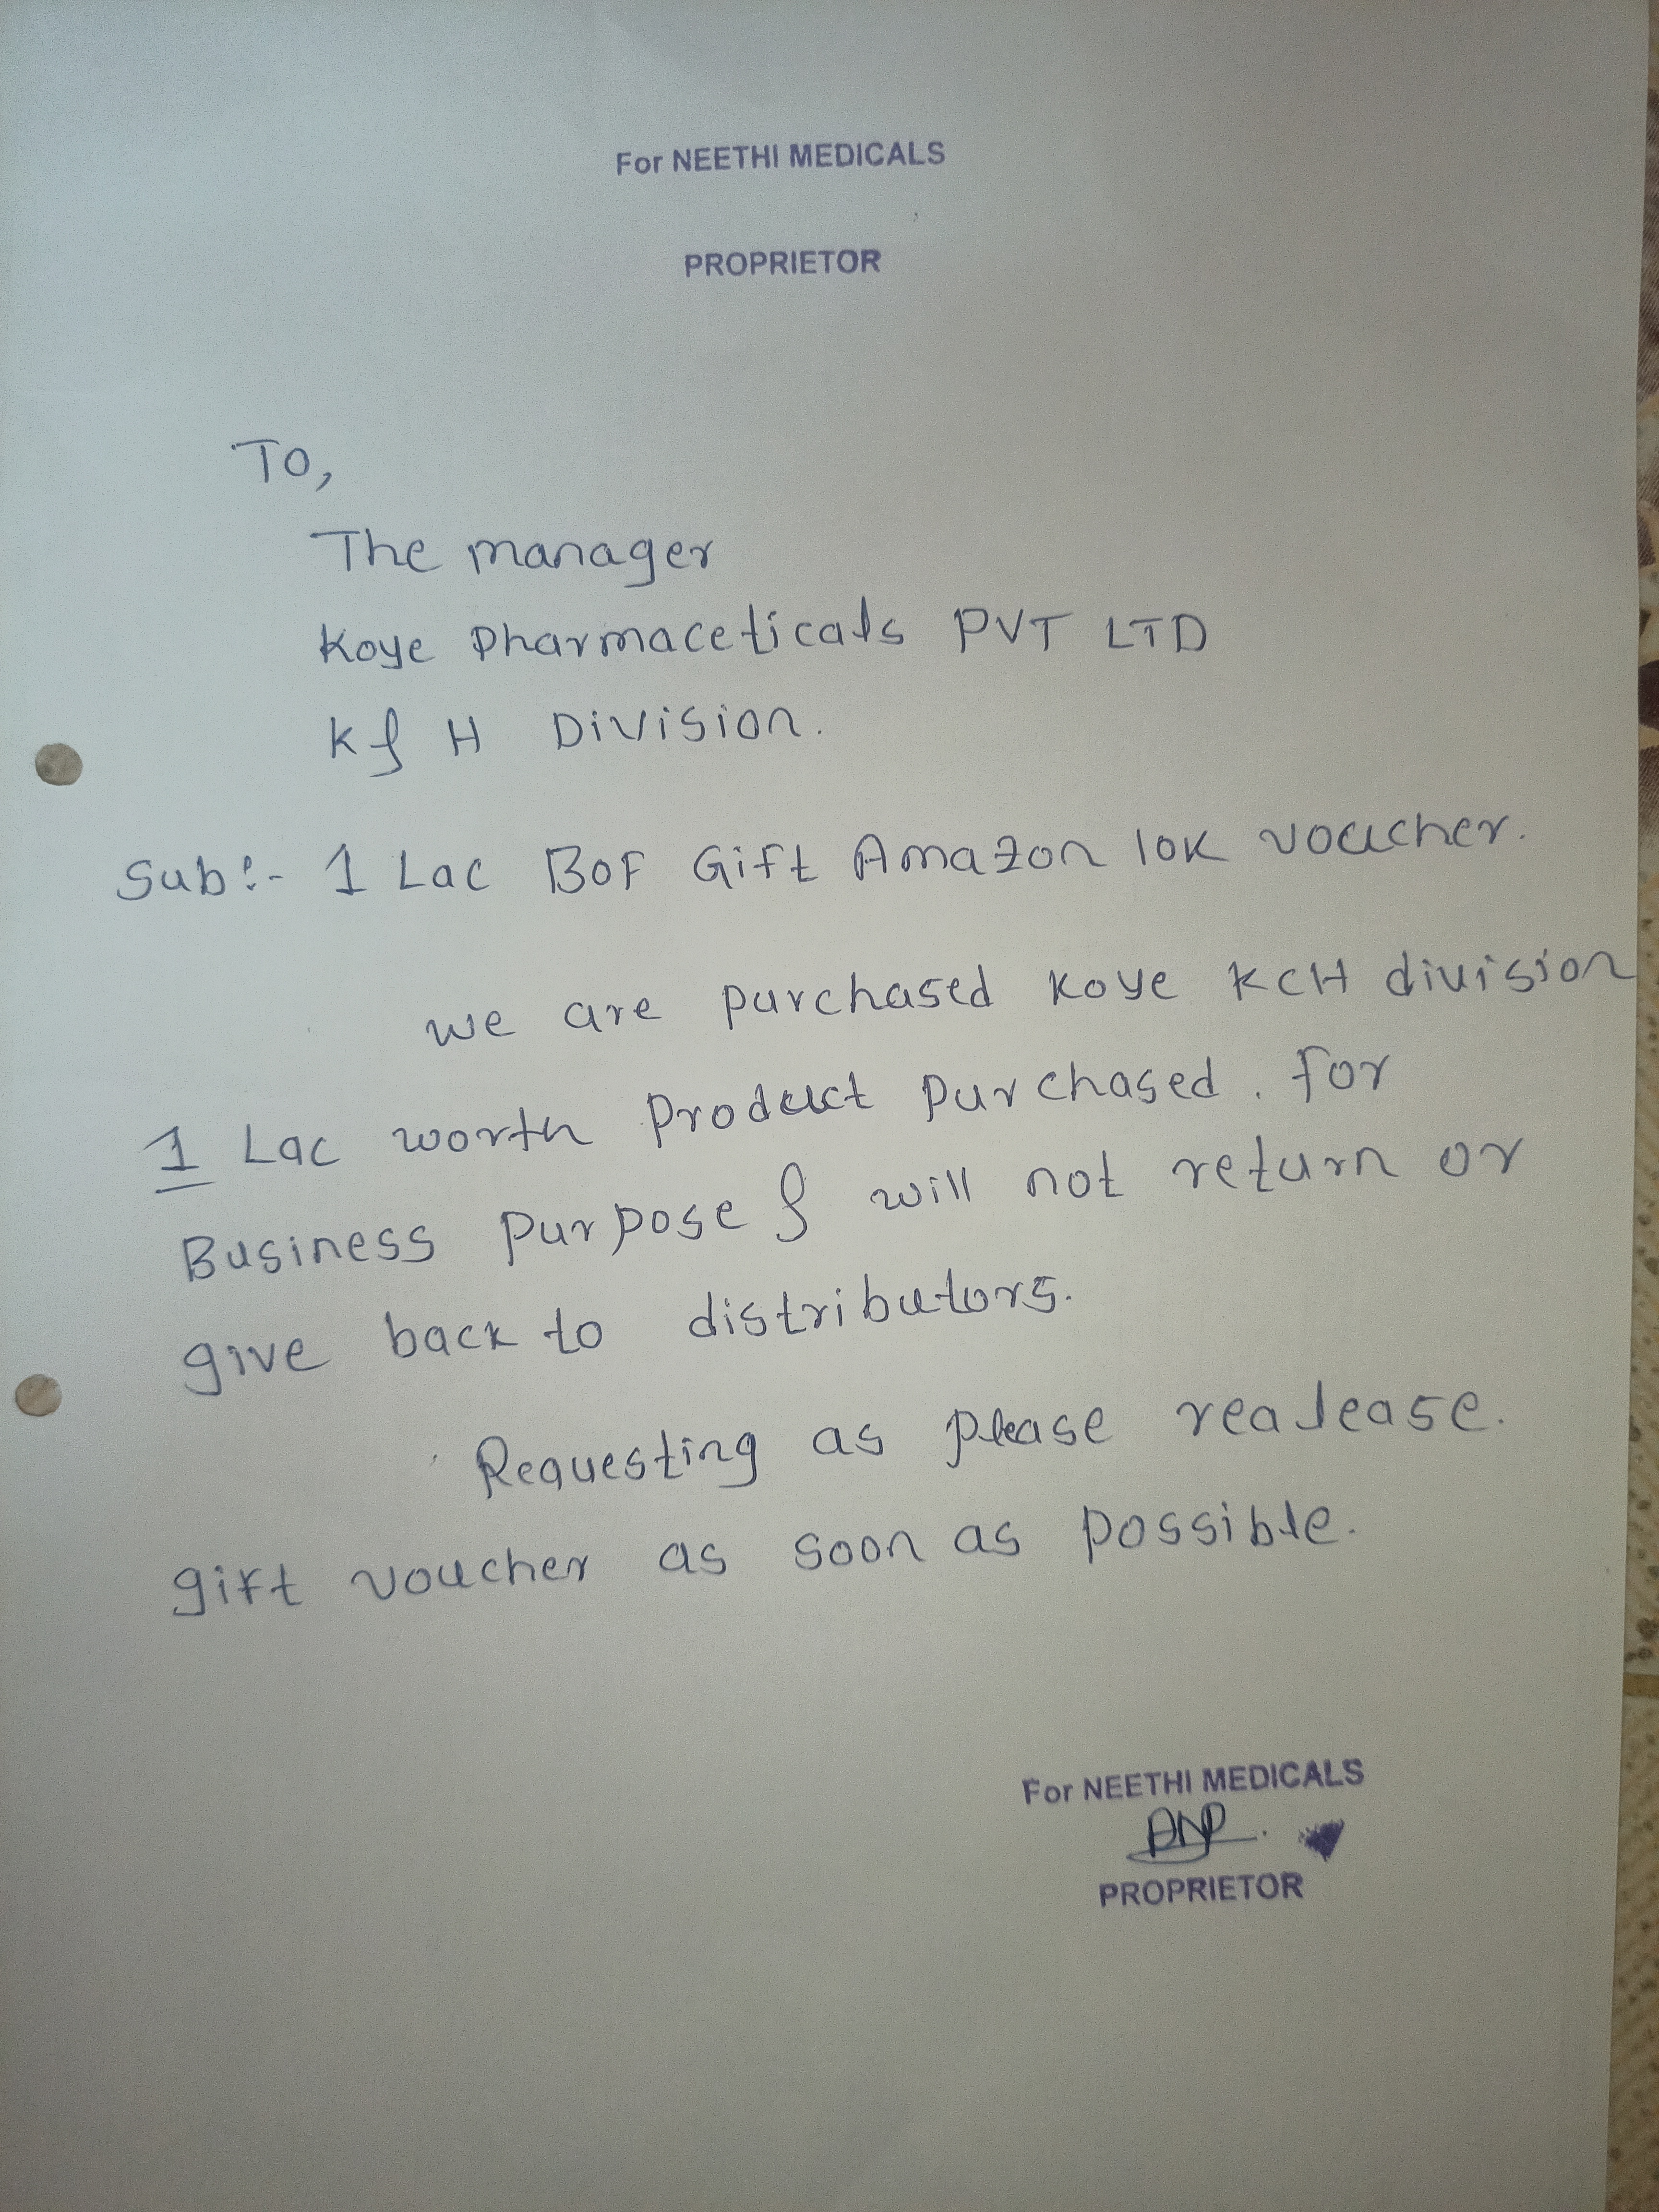 For NEETHI MEDICALS
PROPRIETOR
To,
The manager
Koye Pharmaceticals PVT LTD
K & H Division.
Sub:- 1 Lac BOF Gift Amazon 10K voucher.
we are purchased Koye KCH division
1 Lac worth Product purchased. for
Business purpose & will not return or
give back to distributors.
Requesting as please realease.
gift voucher as soon as possible.
For NEETHI MEDICALS
PROPRIETOR